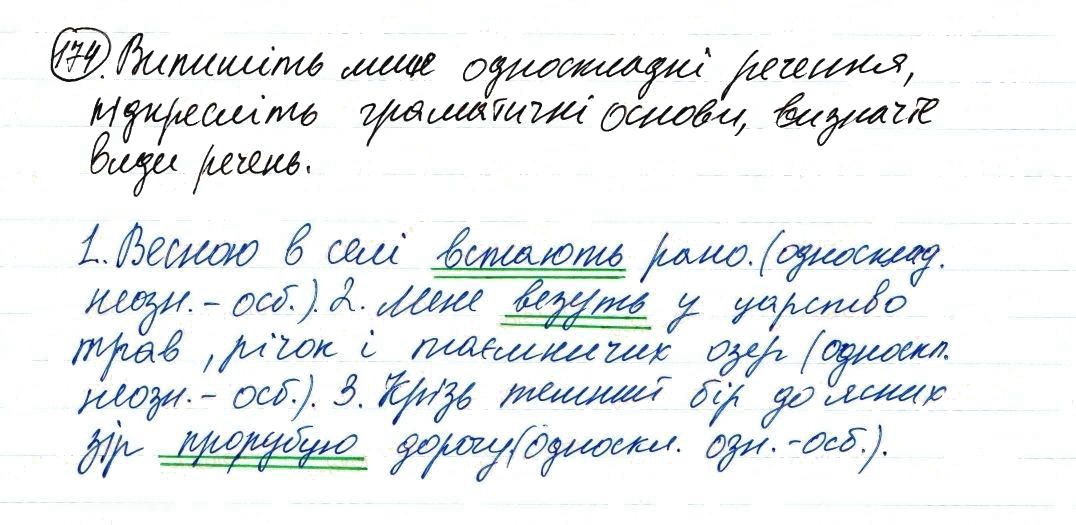 174. Випишіть лише односкладні речення,
підкресліть граматичні основи, визначте
види речень.
1. Весною в селі встають рано. (односклад.
неозн. - осб.). 2. Мене везуть у царство
трав, річок і таємничих озер (односкл.
неозн. - осб.). 3. Крізь темний бір до ясних
зір прорубую дорогу (односкл. озн. - осб.).